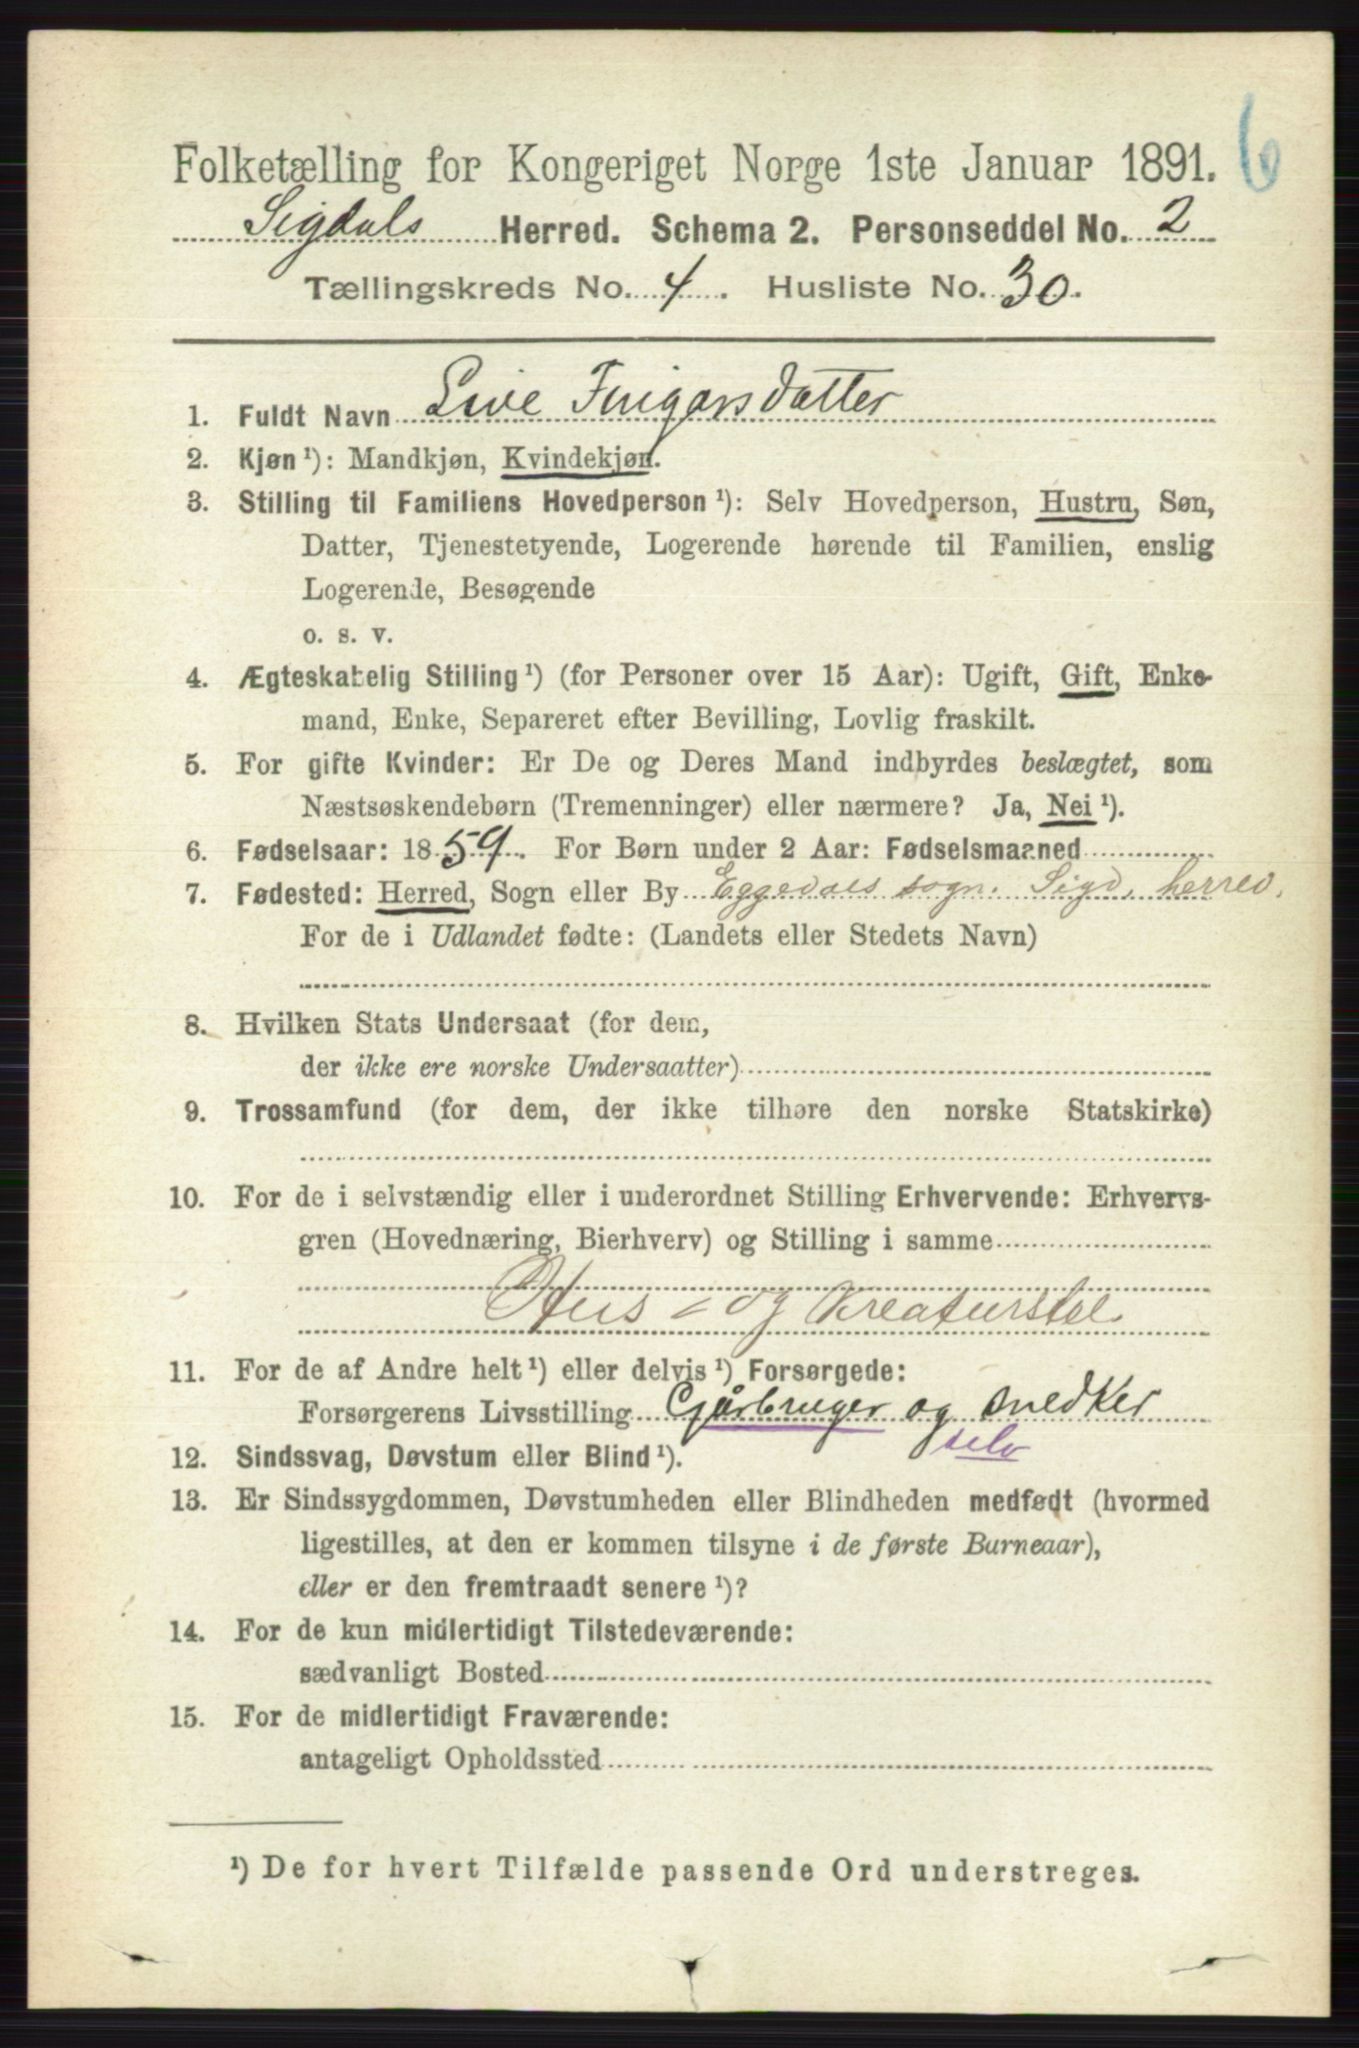 6
Folketælling for Kongeriget Norge 1ste Januar 1891.
Sigdals Herred. Schema 2. Personseddel No. 2
Tællingskreds No. 4. Husliste No. 30.
1. Fuldt Navn Live Fingarsdatter
2. Kjøn ¹): Mandkjøn, Kvindekjøn.
3. Stilling til Familiens Hovedperson ¹): Selv Hovedperson, Hustru, Søn,
Datter, Tjenestetyende, Logerende hørende til Familien, enslig
Logerende, Besøgende
o. s. v.
4. Ægteskabelig Stilling ¹) (for Personer over 15 Aar): Ugift, Gift, Enke-
mand, Enke, Separeret efter Bevilling, Lovlig fraskilt.
5. For gifte Kvinder: Er De og Deres Mand indbyrdes beslægtet, som
Næstsøskendebørn (Tremenninger) eller nærmere? Ja, Nei ¹).
6. Fødselsaar: 1859. For Børn under 2 Aar: Fødselsmaaned
7. Fødested: Herred, Sogn eller By Eggedals sogn. Sigd. herred.
For de i Udlandet fødte: (Landets eller Stedets Navn)
8. Hvilken Stats Undersaat (for dem,
der ikke ere norske Undersaatter)
9. Trossamfund (for dem, der ikke tilhøre den norske Statskirke)
10. For de i selvstændig eller i underordnet Stilling Erhvervende: Erhvervs-
gren (Hovednæring, Bierhverv) og Stilling i samme
Hus- og Kreaturstel
11. For de af Andre helt ¹) eller delvis ¹) Forsørgede:
Forsørgerens Livsstilling Gårbruger og snedker
selv
12. Sindssvag, Døvstum eller Blind ¹).
13. Er Sindssygdommen, Døvstumheden eller Blindheden medfødt (hvormed
ligestilles, at den er kommen tilsyne i de første Barneaar),
eller er den fremtraadt senere ¹)?
14. For de kun midlertidigt Tilstedeværende:
sædvanligt Bosted
15. For de midlertidigt Fraværende:
antageligt Opholdssted
¹) De for hvert Tilfælde passende Ord understreges.